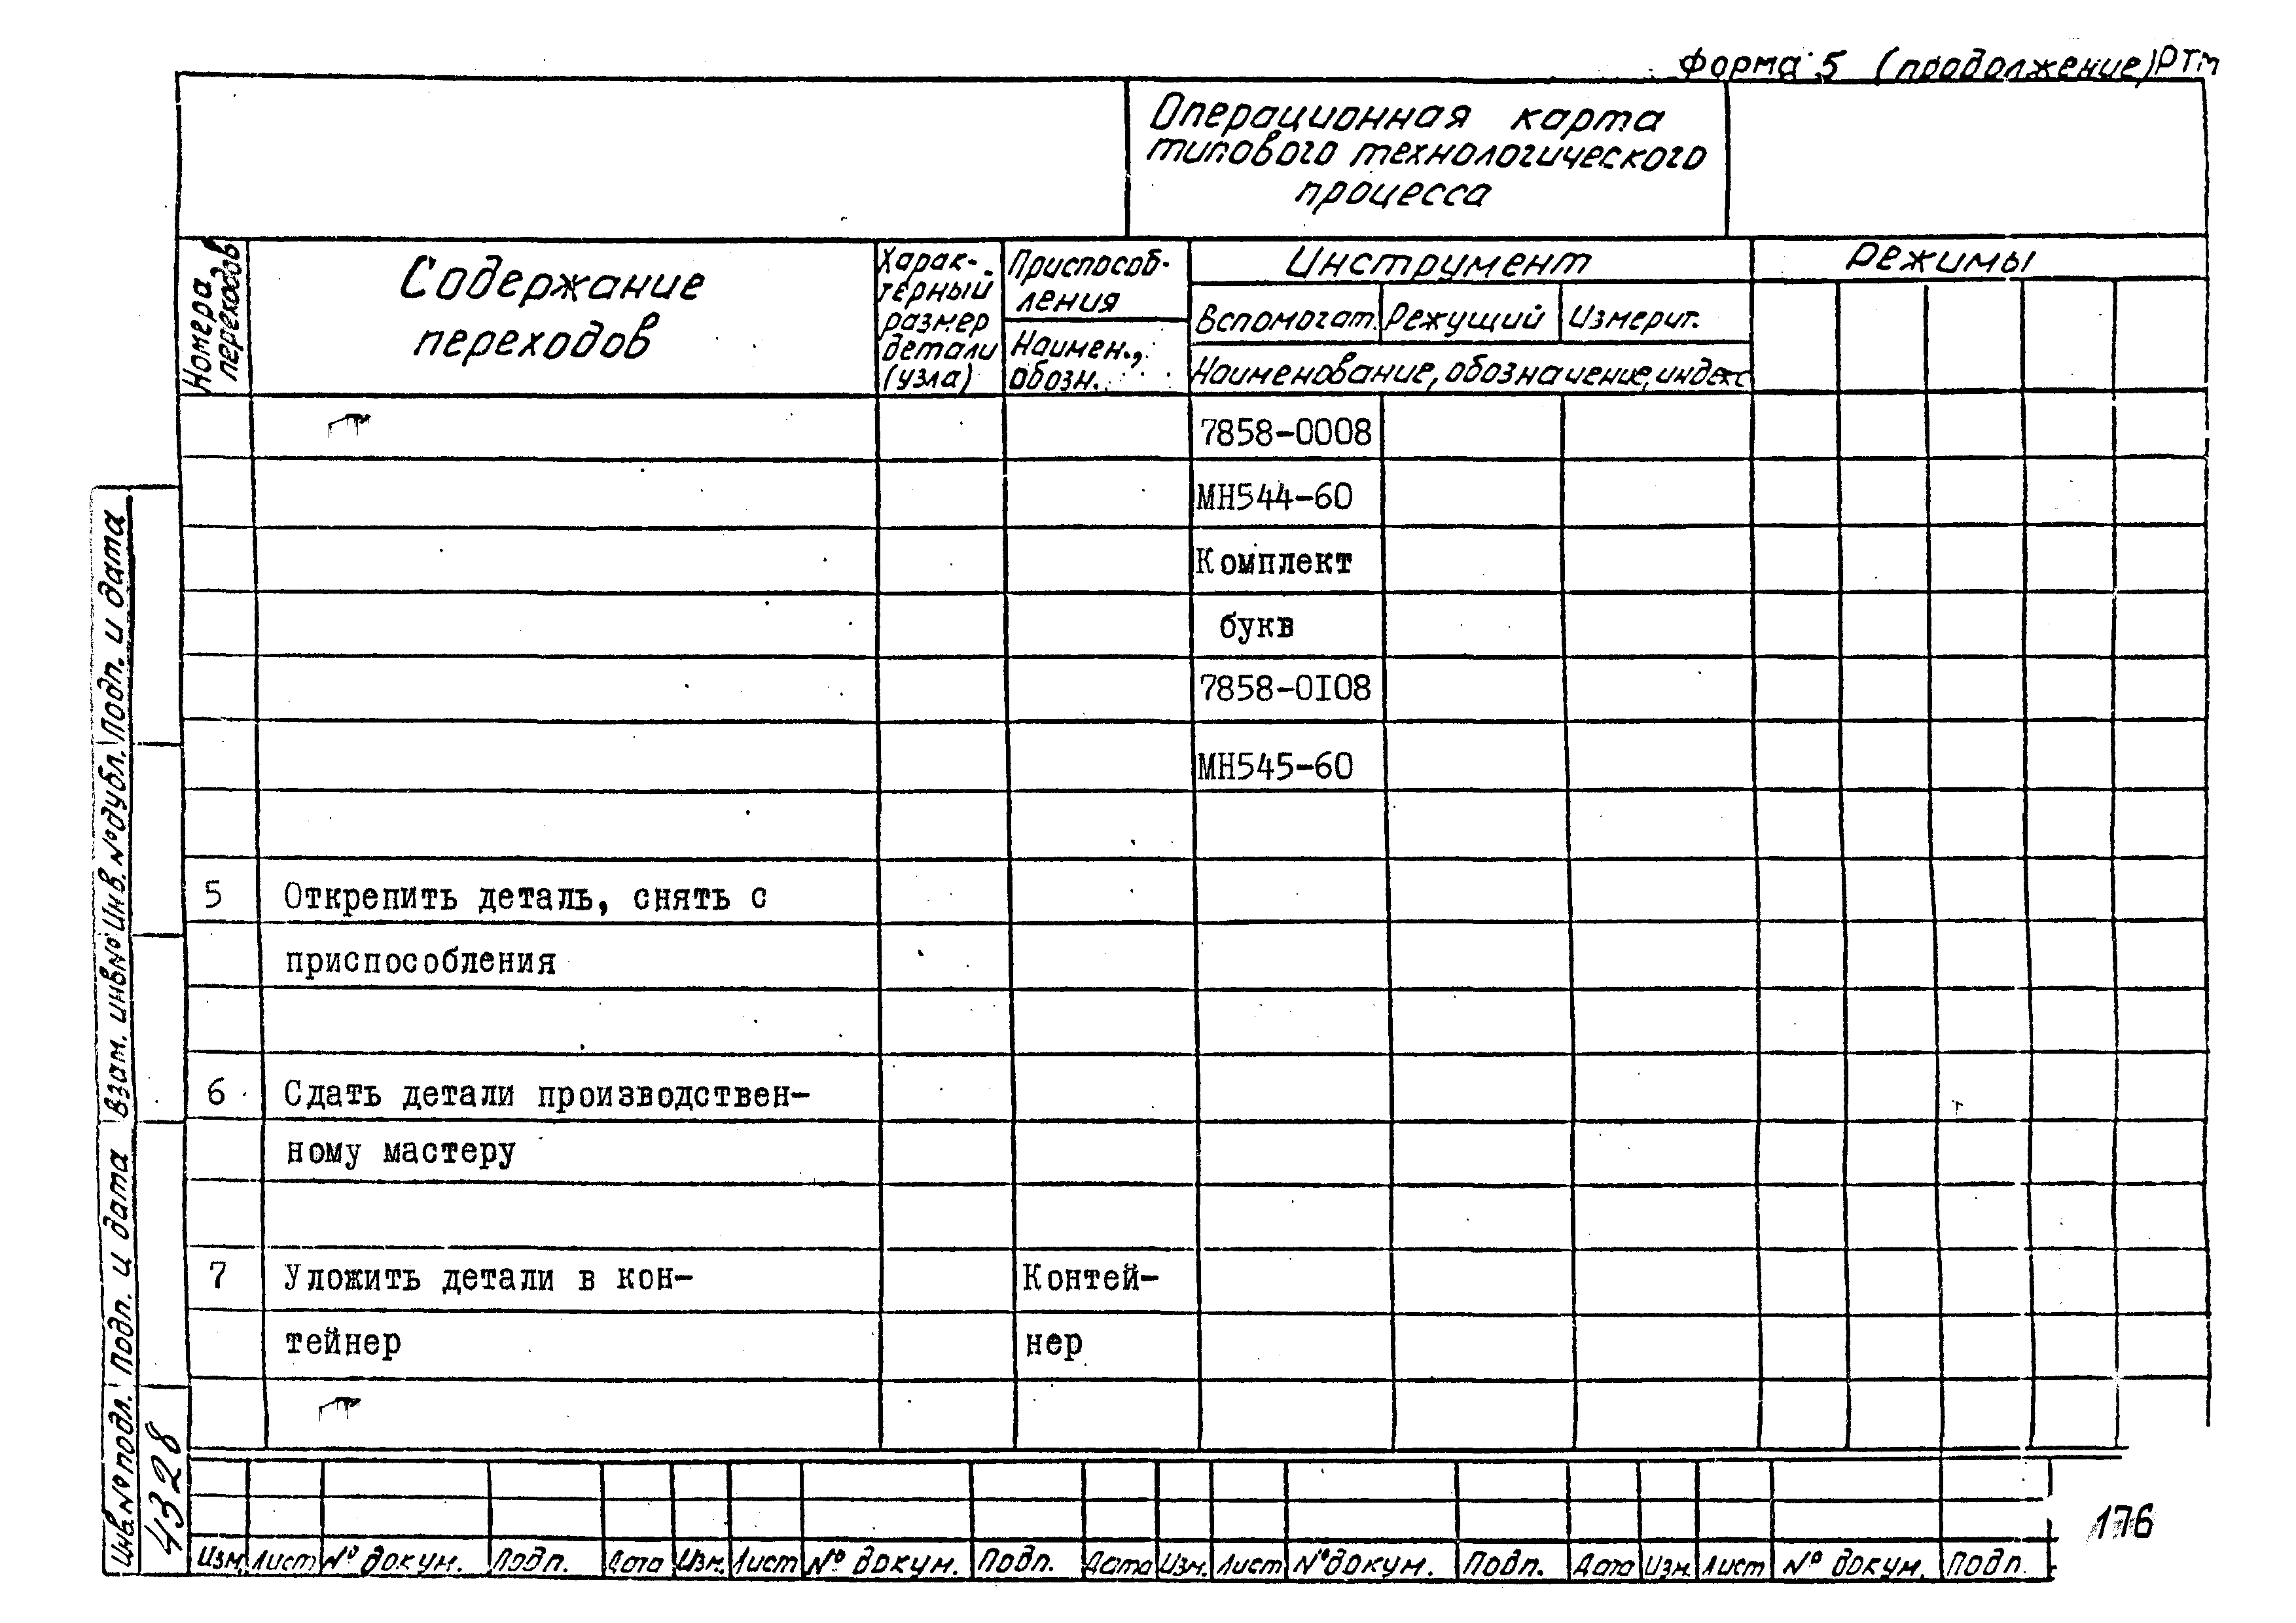 Форма 5 (продолжение) РТм
Операционная карта
типового технологического
процесса
Номера
переходов
Содержание
переходов
Харак-
терный
размер
детали
(узла)
Приспособ-
ления
Наимен.,
обозн.
Инструмент
Вспомогат. Режущий Измерит.
Наименование, обозначение, индекс
Режимы
7858-0008
МН544-60
Комплект
букв
7858-0I08
МН545-60
5 Открепить деталь, снять с
приспособления
6 Сдать детали производствен-
ному мастеру
7 Уложить детали в кон- Контей-
тейнер нер
Инв.№подл. Подп. и дата Взам. инв№ Инв.№дубл. Подп. и дата
4328
Изм. Лист № докум. Подп. Дата Изм. Лист № докум. Подп. Дата Изм. Лист № докум. Подп. Дата Изм. Лист № докум. Подп.
176